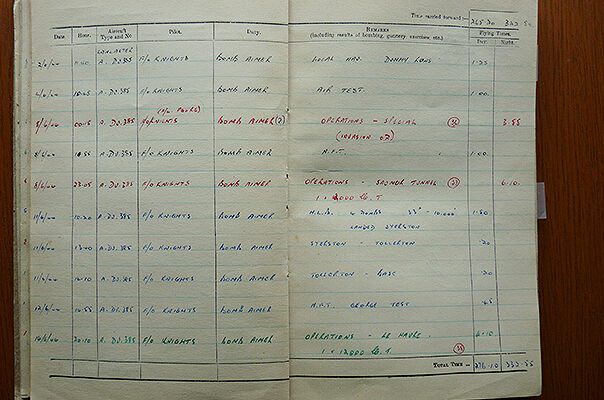 Time carried forward:— 265.30 322.50
Date. Hour. Aircraft Type and No Pilot. Duty. REMARKS (including results of bombing, gunnery, exercises, etc.) Flying Times. Day. Night.
LANCASTER
2/6/44 A. DV.385 F/O KNIGHTS BOMB AIMER LOCAL NAV. DUMMY LOAD 1.25
4/6/44 A. DV.385 F/O KNIGHTS BOMB AIMER AIR TEST. 1.00
5/6/44 A. DV.385 F/O KNIGHTS BOMB AIMER (2) OPERATIONS - SPECIAL (36) 3.55
(INVASION
8/6/44 A. DV.385 F/O KNIGHTS BOMB AIMER 1.00
8/6/44 23.05 A. DV.385 F/O KNIGHTS BOMB AIMER OPERATIONS - SAUMUR TUNNEL 6.10
1 × 12000 lb. T
11/6/44 10.20 A. DV.385 F/O KNIGHTS BOMB AIMER H.L.B. 10,000' 1.50
LANDED SYERSTON
11/6/44 A. DV.385 F/O KNIGHTS BOMB AIMER SYERSTON - TOLLERTON .20
11/6/44 A. DV.385 F/O KNIGHTS BOMB AIMER TOLLERTON - BASE .20
12/6/44 A. DV.385 F/O KNIGHTS BOMB AIMER GEORGE TEST .45
14/6/44 20.10 A. DV.385 F/O KNIGHTS BOMB AIMER OPERATIONS - LE HAVRE.
1 × 12000 lb. T
TOTAL TIME ... 276.10 332.55